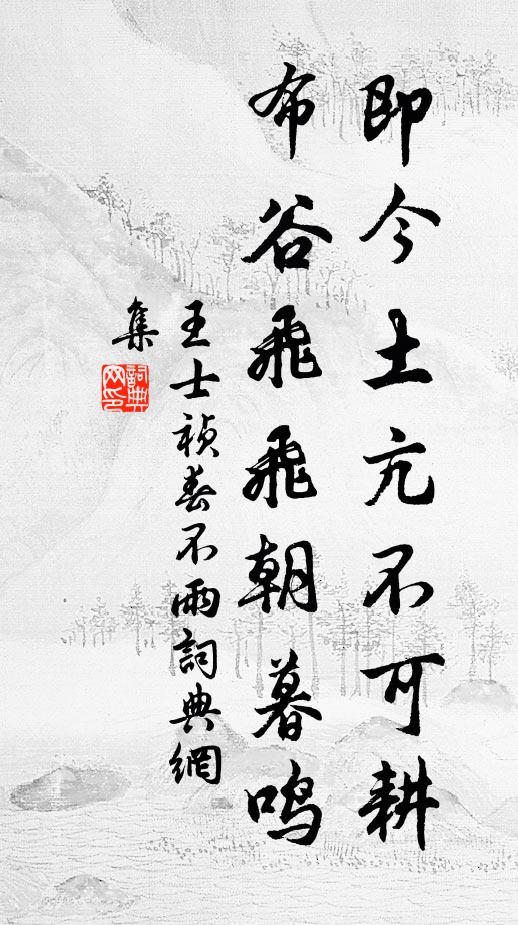 即今土亢不可耕
布谷飛飛朝暮鸣
王士禎春不雨詞典網
集
詞典網印